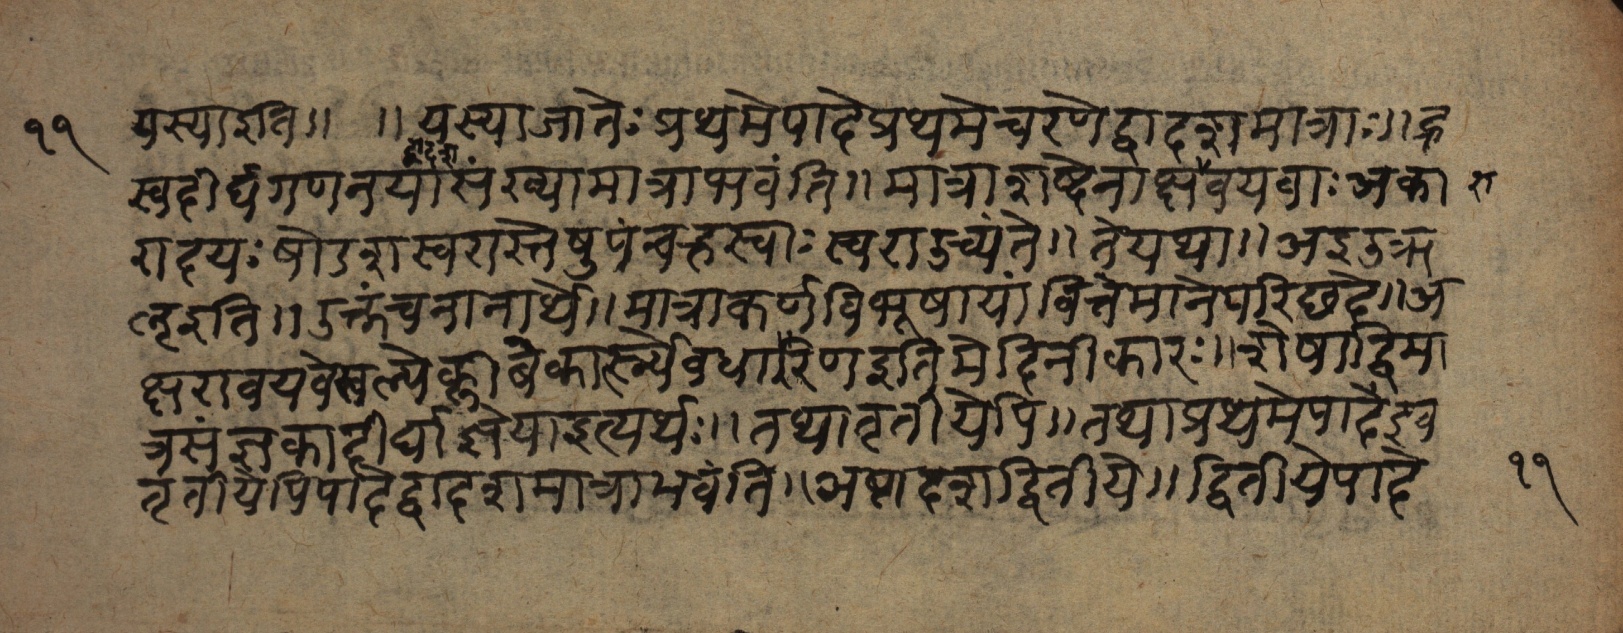 ११ यस्याइति॥ ॥यस्याजातेः प्रथमेपादेप्रथमेचरणेद्वादशमात्राः॥ह्र
द्वादश
स्वदीर्घगणनयासंख्यामात्राभवंति॥मात्राशब्देनाक्षरावयवाः अका
रादयः षोडशस्वरास्तेषुपंचह्रस्वाः स्वराउच्यंते॥तेयथा॥अइउऋ
लृइति॥उक्तंचनानार्थे॥मात्राकर्णविभूषायांवित्तेमानेपरिछदे॥अ
क्षरावयवेस्वल्पेक्लीबेकार्त्स्न्येवधारणेइतिमेदिनीकारः॥शेषाद्विमा
त्रसंज्ञकादीर्घाज्ञेयाइत्यर्थः॥तथातृतीयेपि॥तथाप्रथमेपादेइव
तृतीयेपिपादेद्वादशमात्राभवंति॥अष्टादशद्वितीये॥द्वितीयेपादे ११